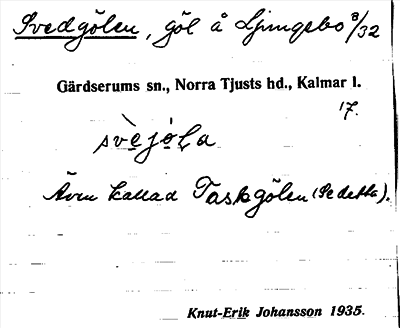 Svedgölen, göl å Ljungsbo 8/32
Gärdserums sn., Norra Tjusts hd., Kalmar l.
17.
svèjóla
Även kallad Taskgölen (Se detta).
Knut-Erik Johansson 1935.